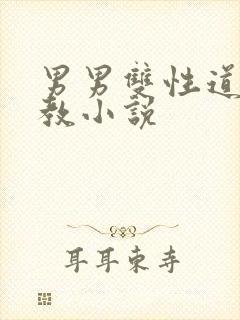 男男雙性道
教小說
耳耳東寺